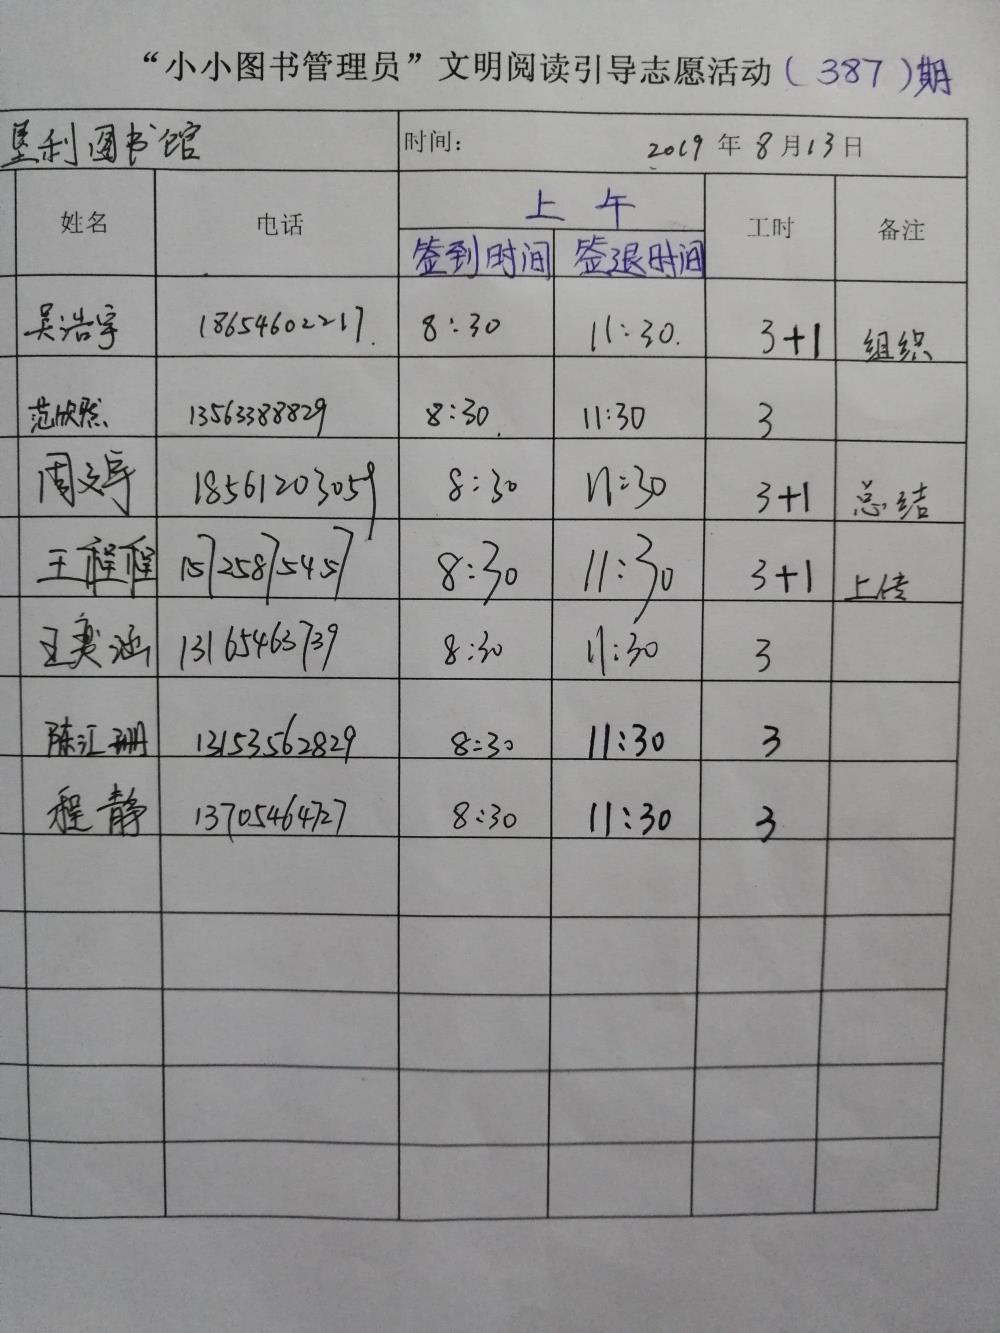 “小小图书管理员”文明阅读引导志愿活动(387)期
垦利图书馆 时间: 2019年8月13日
姓名 电话 上午 工时 备注
签到时间 签退时间
吴浩宇 18654602217. 8:30 11:30. 3+1 组织
范欣然 13563388829 8:30. 11:30 3
周文宇 18561203059 8:30 11:30 3+1 总结
王程程 15725875457 8:30 11:30 3+1 上传
王奕涵 13165463739 8:30 11:30 3
陈汇珊 13153562829 8:30 11:30 3
程静 13705464727 8:30 11:30 3